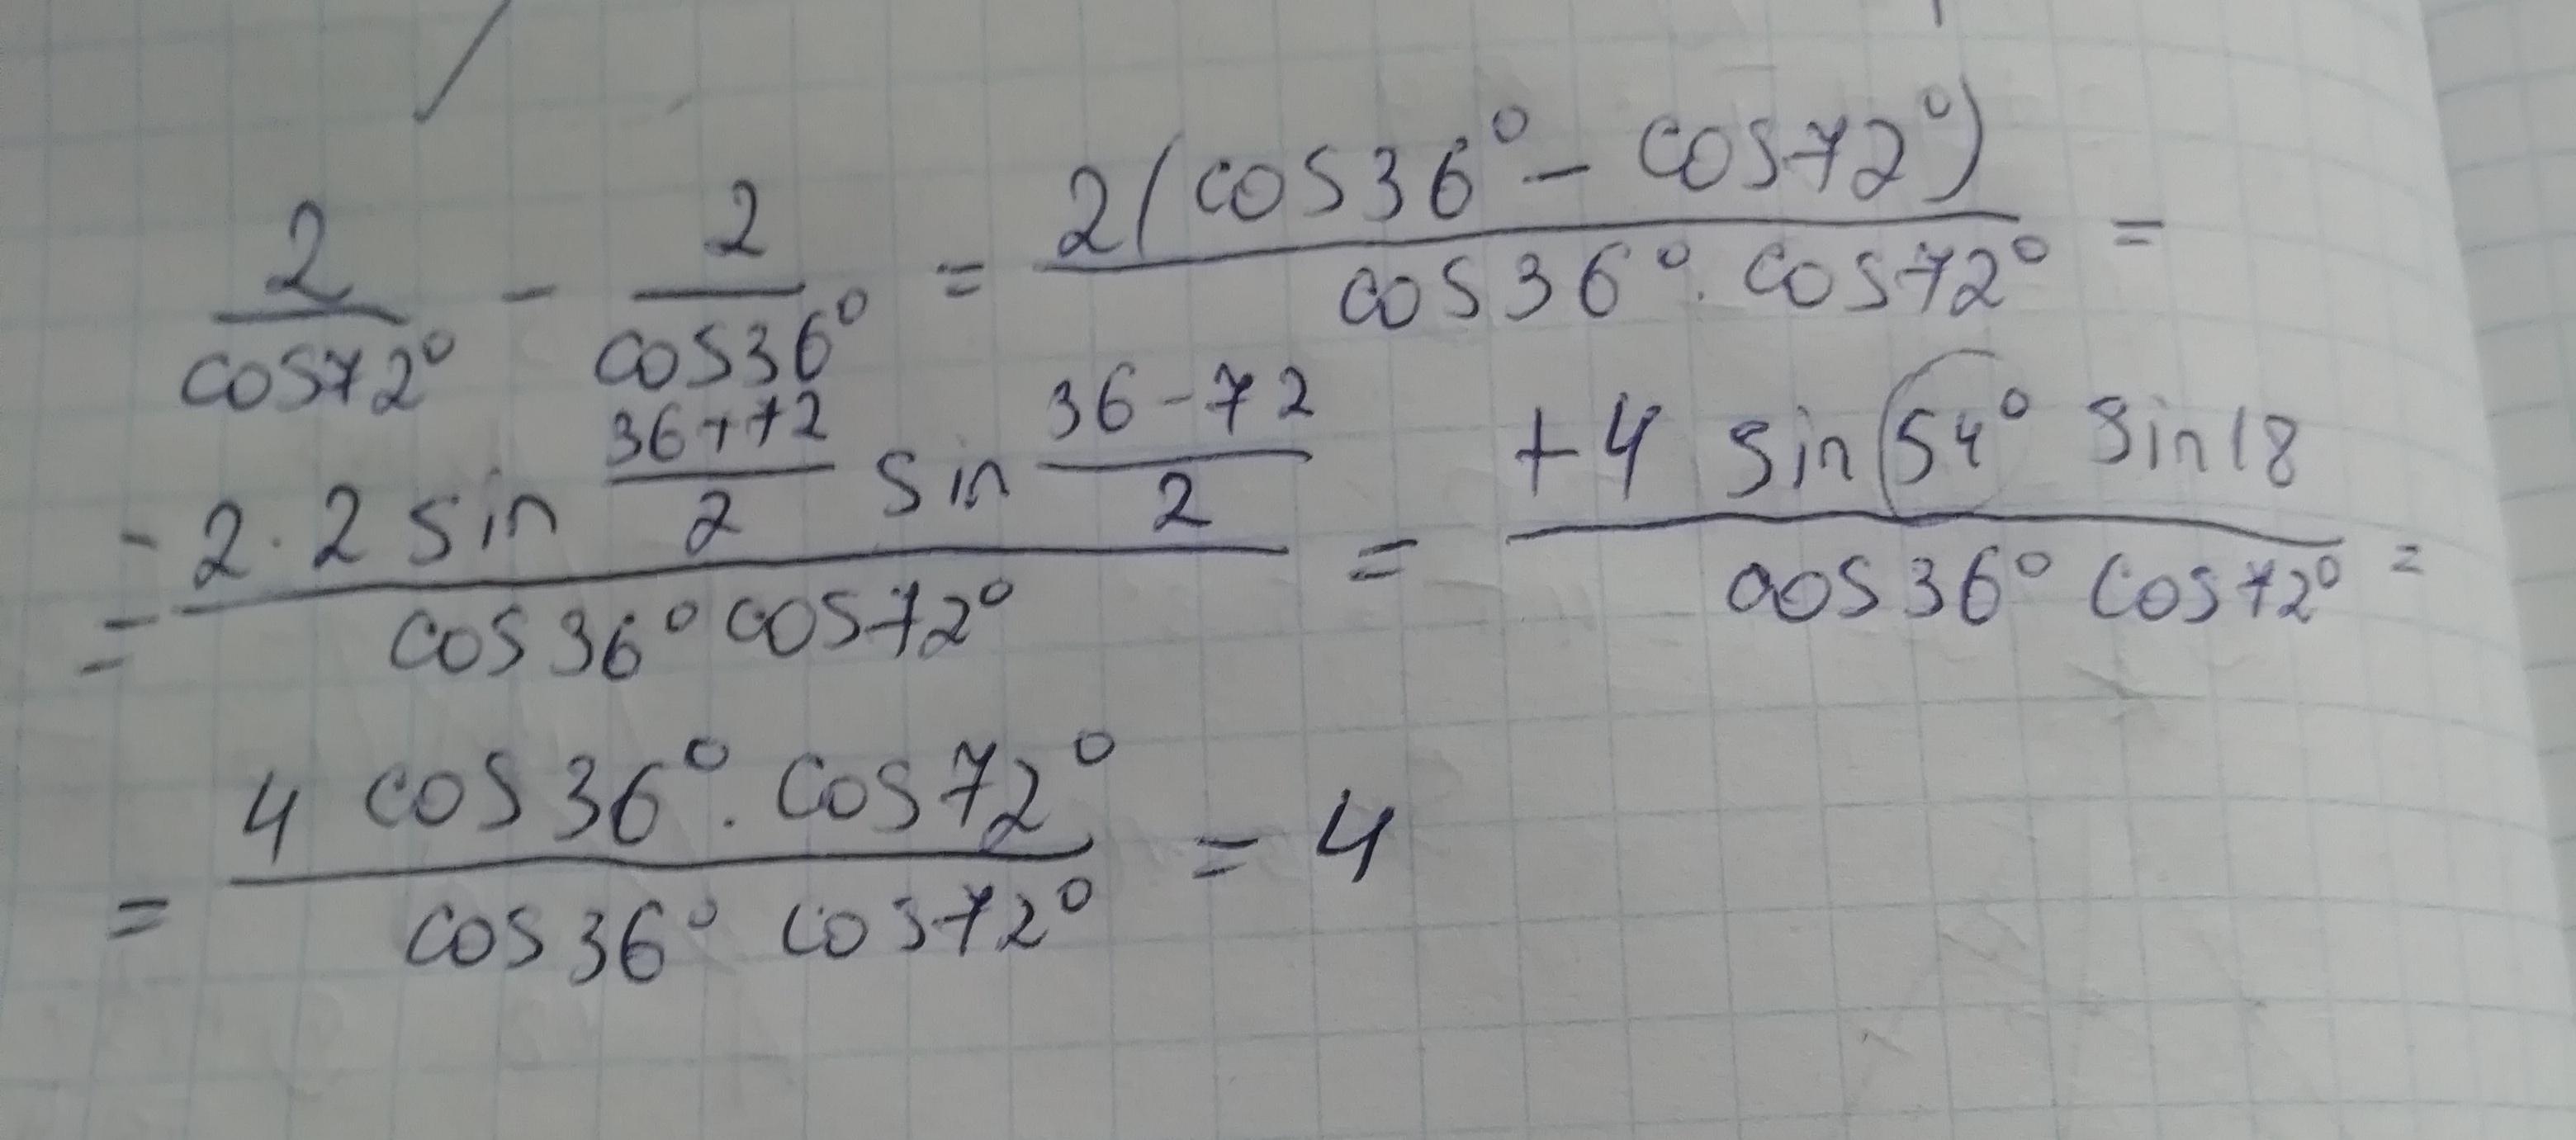 2/cos72° - 2/cos36° = 2(cos36° - cos72°)/cos36° · cos72° =
= -2·2 sin (36+72)/2 sin (36-72)/2 / cos36° cos72° = +4 sin54° sin18 / cos36° cos72° =
= 4 cos36° · cos72° / cos36° cos72° = 4